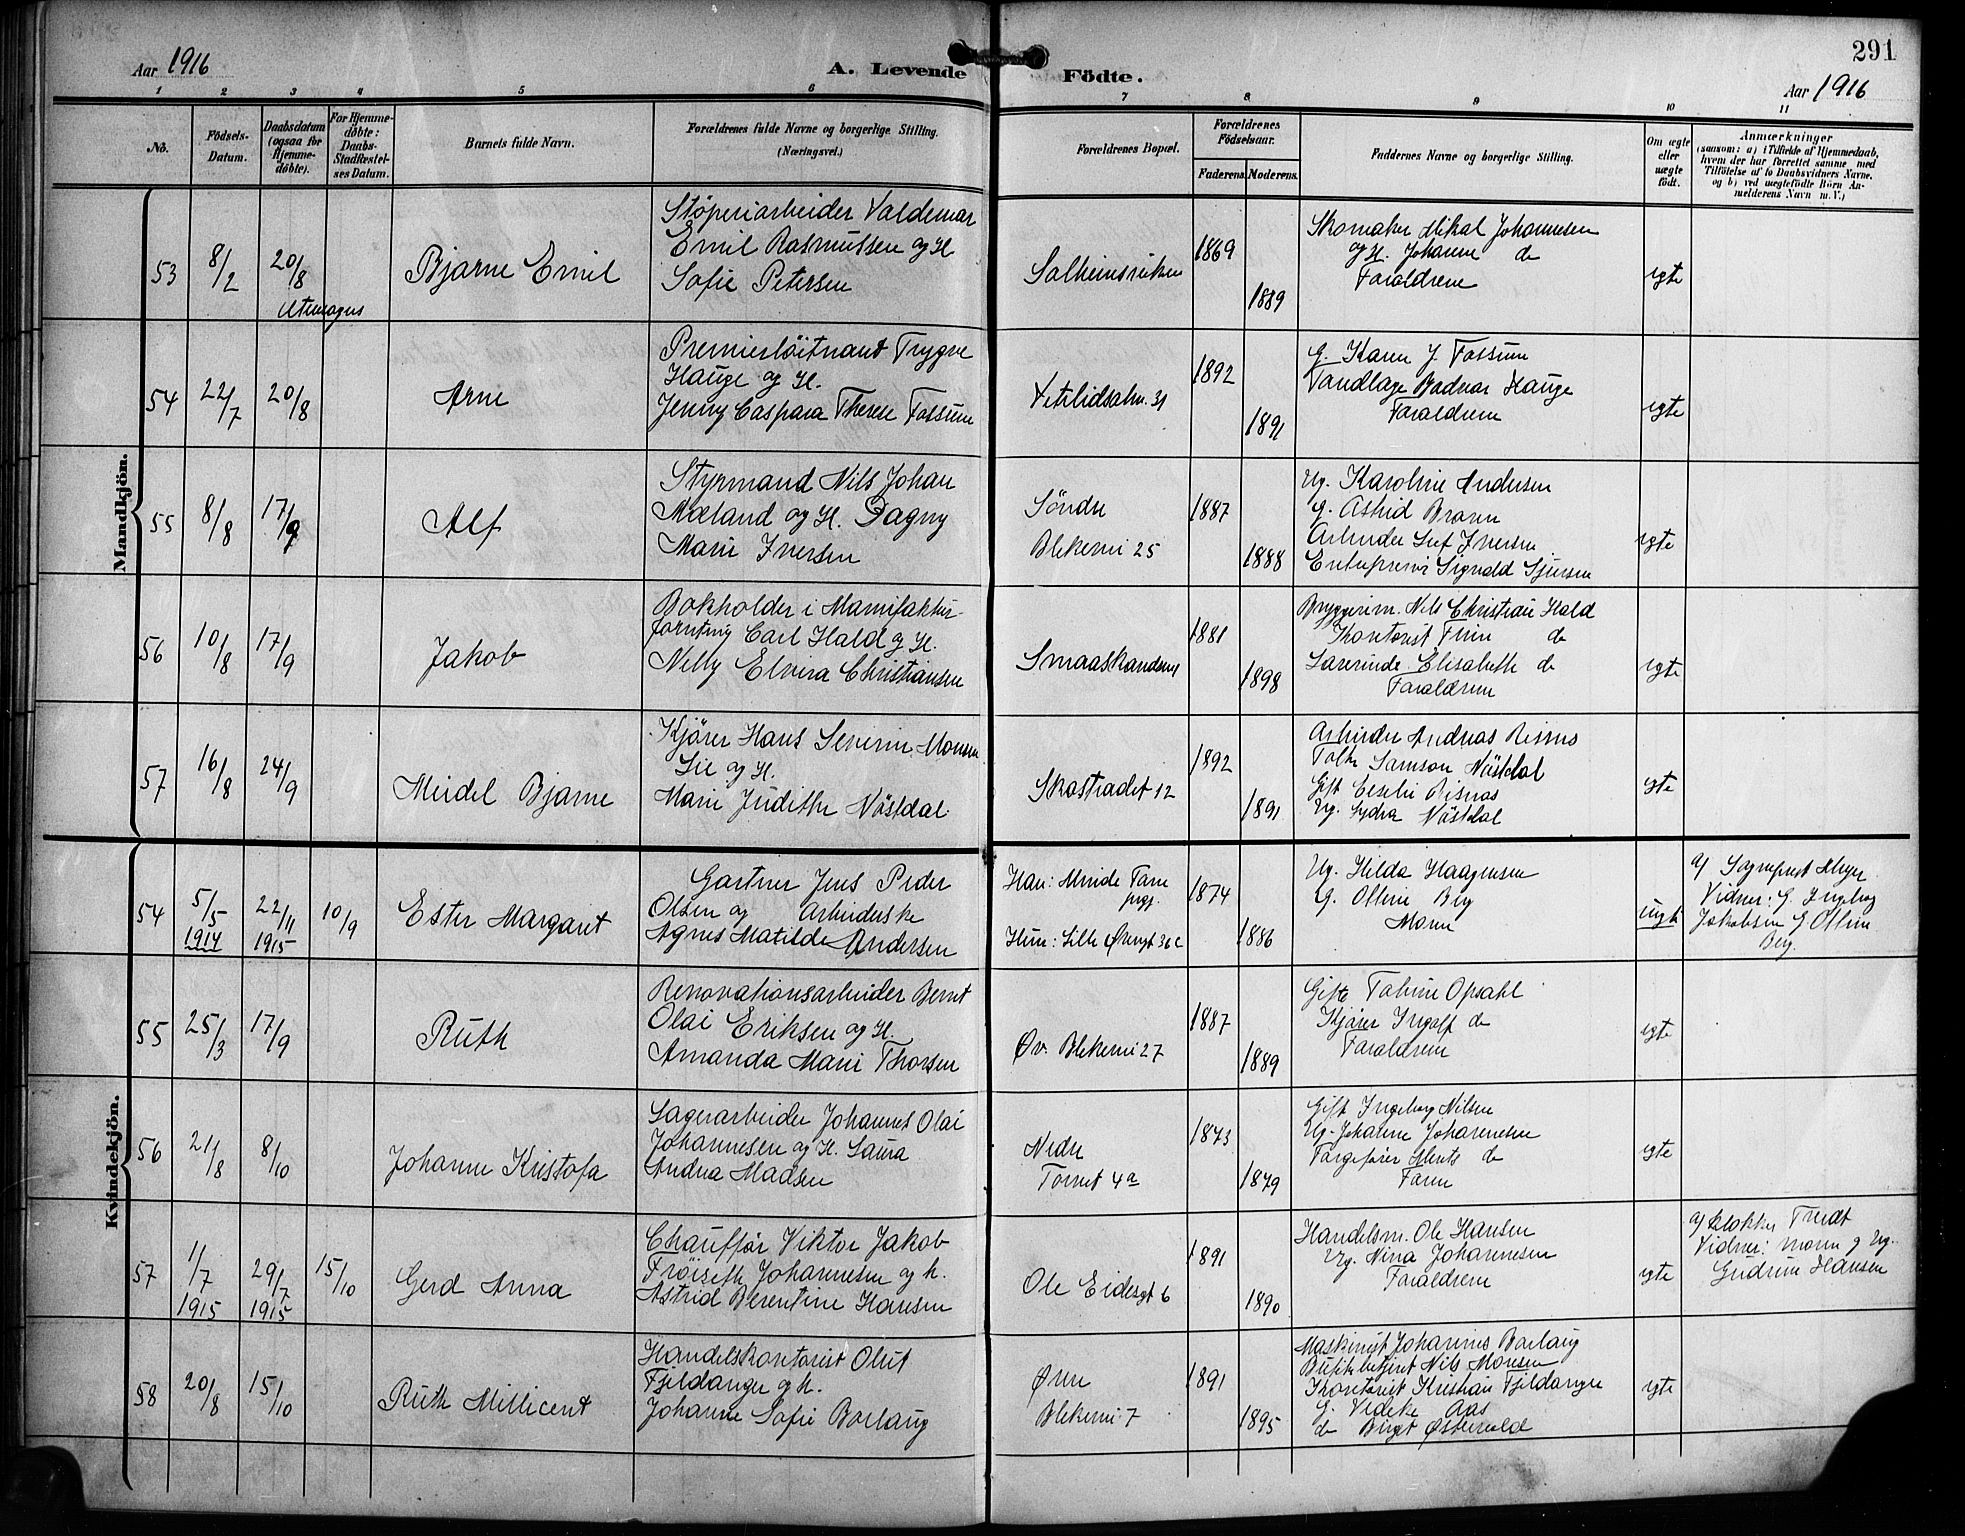 291
Aar 1916
A. Levende Födte.
Aar 1916
1 2 3 4 5 6 7 8 9 10 11
No.
Födsels-
Datum.
Daabsdatum
(ogsaa for
Hjemme-
døbte).
For Hjemme-
døbte:
Daabs-
Stadfæstel-
ses Datum.
Barnets fulde Navn.
Forældrenes fulde Navne og borgerlige Stilling.
(Næringsvei.)
Forældrenes Bopæl.
Forældrenes
Födselsaar.
Faderens. Moderens.
Faddernes Navne og borgerlige Stilling.
Om ægte
eller
uægte
født.
Anmærkninger
(saasom: a) i Tilfælde af Hjemmedaab,
hvem der har forrettet samme med
Tilföielse af to Daabsvidners Navne,
og b) ved uægtefödte Börn An-
melderens Navn m. V.)
Mandkjön.
53
8/2
20/8
Bjarne Emil
Støperiarbeider Valdemar
Emil Rasmussen og H.
Sofie Petersen
Solheimsviken
1869
1889
Skomaker Mikal Johannesen
og H. Johanne do
Forældrene
egte
54
22/7
20/8
Arne
Premierløitnant Trygve
Hauge og H.
Jenny Caspara Therese Fossum
Vetrlidsalm. 31
1892
1891
G. Karen J. Fossum
Tandlæge Hauge
Forældrene
egte
55
8/8
17/9
Alf
Styrmand Nils Johan
Mæland og H. Dagny
Marie Iversen
Søndre
Blekevei 25
1887
1888
Ug. Karoline Andersen
G. Astrid Braren
Arbeider Leif Iversen
Entreprenør Sigvald Sjursen
egte
56
10/8
17/9
Jakob
Bokholder i Manufaktur-
forretning Carl Hald og H.
Nelly Elvira Christiansen
Smaaskandsen
1881
1898
Bryggerim. Nils Christian Hald
Kontorist Finn do
Lærerinde Elisabeth do
Forældrene
egte
57
16/8
24/9
Meidel Bjarne
Kjører Hans Severin Monsen
Lie og H.
Marie Judithe Nøstdal
Skostrædet 12
1892
1891
Arbeider Andreas Risnes
Samson Nøstdal
Gift Cecilie Risnes
Ug. Lydia Nøstdal
egte
Kvindekjön.
54
5/5
1914
22/11
1915
10/9
Ester Margaret
Gartner Jens Peder
Olsen og Arbeiderske
Agnes Matilde Andersen
Han: Minde Fane
Hun: Lille Øvregt 36c
1874
1886
Ug. Hilda Haagensen
G. Ottine Berg
Moren
uegte
af Sogneprest Meyer
Vidner: G. Ingeborg
Jakobsen G Ottine
Berg.
55
25/3
17/9
Ruth
Renovationsarbeider Bernt
Olai Eriksen og H.
Amanda Marie Thorsen
Øv. Blekevei 27
1887
1889
Gifte Tobine Opsahl
Kjører Ingolf do
Forældrene
egte
56
21/8
8/10
Johanne Kristofa
Lagerarbeider Johannes Olai
Johannesen og H. Laura
Andrea Madsen
Nedre
Torvet 4a
1873
1879
Gift Ingeborg Nilsen
Ug. Johanne Johannesen
Færgefører Ments do
Faren
egte
57
1/7
1915
29/7
1915
15/10
Gerd Anna
Chauffør Viktor Jakob
Frøiseth Johannesen og h.
Astrid Berentine Hansen
Ole Eidesgt 6
1891
1890
Handelsm. Ole Hansen
Ug. Nina Johannesen
Forældrene
egte
af klokker Tredt
Vidner: Moren og Ug.
Gudrun Hansen
58
20/8
15/10
Ruth Millicent
Handelskontorist Oluf
Fjeldanger og h.
Johanne Sofie Borlaug
Øvre
Blekevei 7
1891
1895
Maskinist Johannes Borlaug
Butikbetjent Nils Monsen
Kontorist Kristian Fjeldanger
G. Videke Aas
do Birgit Østervold
egte